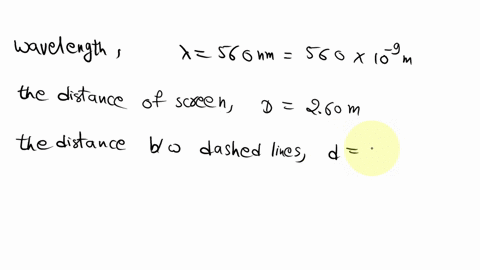 wavelength, λ = 560 nm = 560 × 10⁻⁹ m
the distance of screen, D = 2.60 m
the distance b/o dashed lines, d =